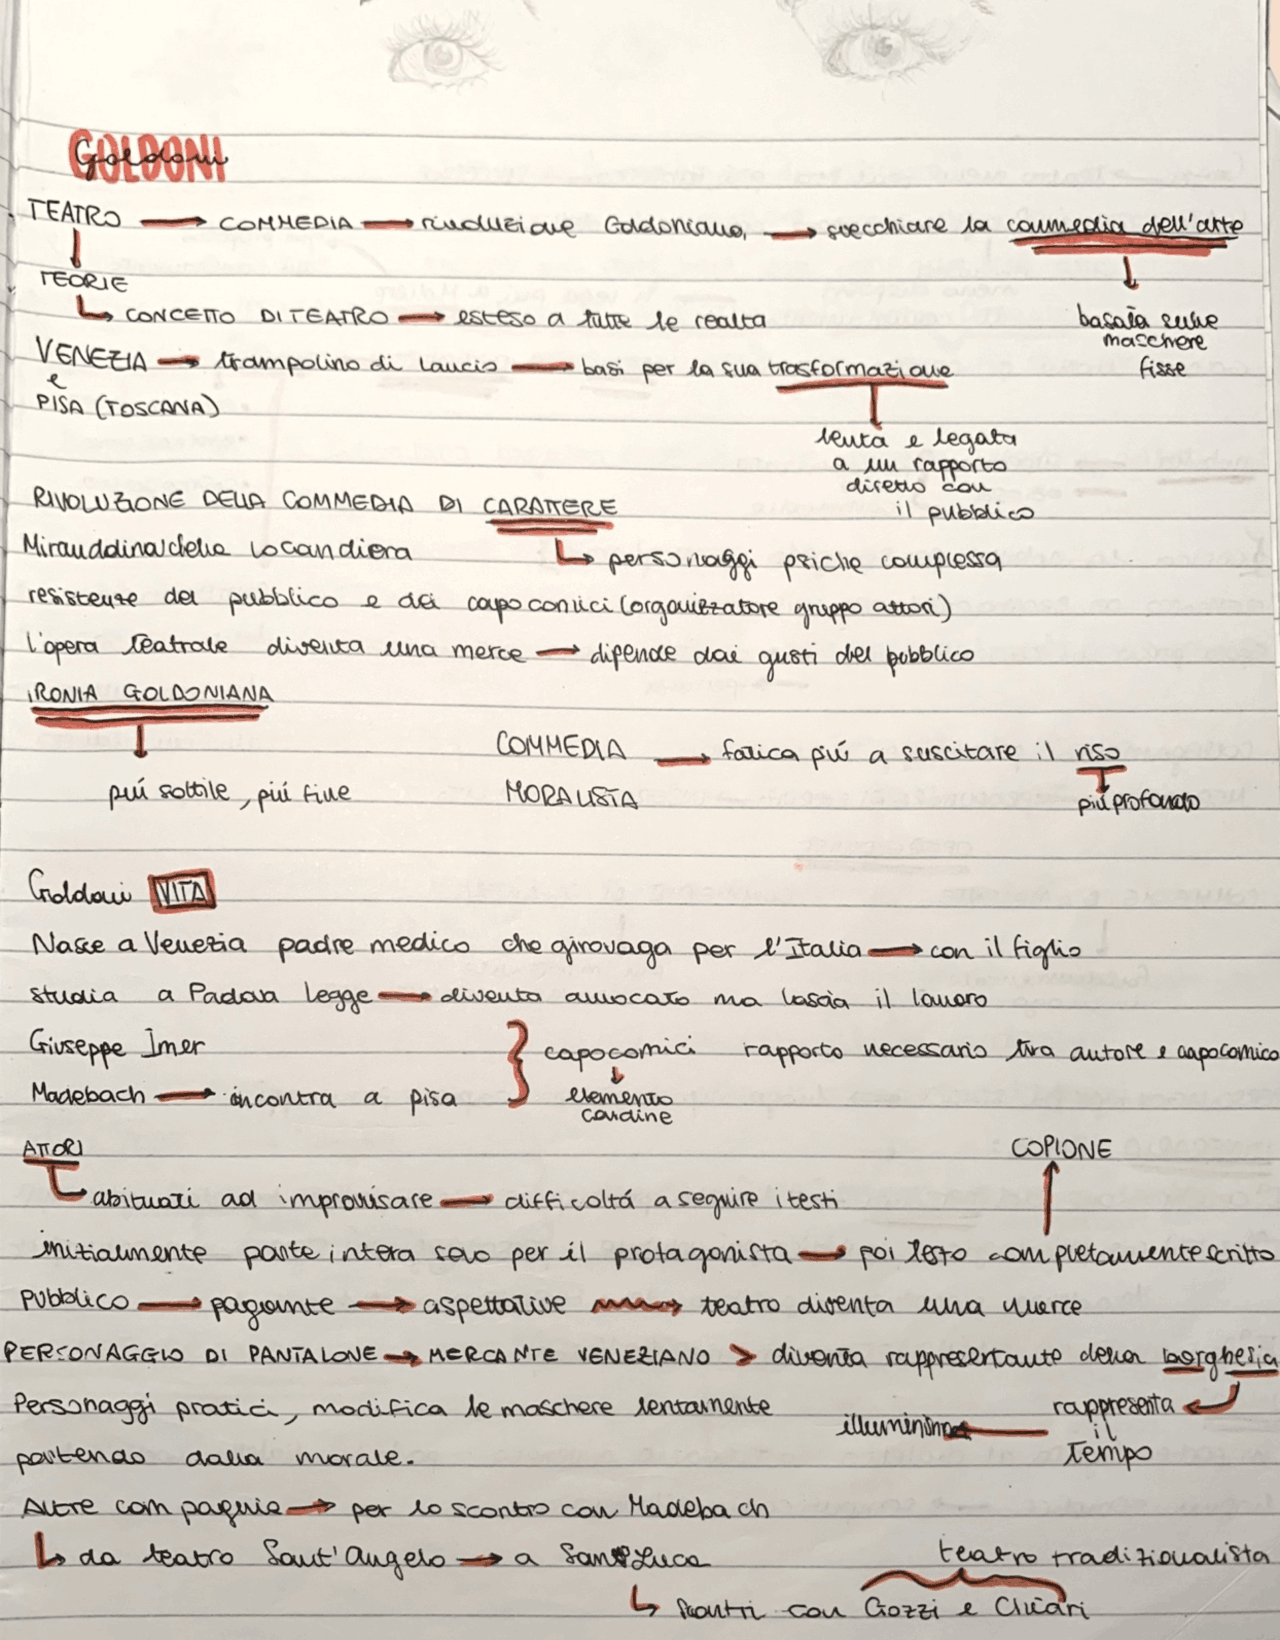 GOLDONI
TEATRO → COMMEDIA → rivoluzione Goldoniana, → svecchiare la commedia dell'arte
TEORIE
↳ CONCETTO DI TEATRO → esteso a tutte le realtà
basata sulle
maschere
fisse
VENEZIA → trampolino di lancio → basi per la sua trasformazione
e
PISA (TOSCANA)
lenta e legata
a un rapporto
diretto con
il pubblico
RIVOLUZIONE DELLA COMMEDIA DI CARATTERE
↳ personaggi psiche complessa
Mirauddina/della locandiera
resistenze del pubblico e dei capocomici (organizzatore gruppo attori)
l'opera teatrale diventa una merce → dipende dai gusti del pubblico
IRONIA GOLDONIANA
più sottile, più fine
COMMEDIA → fatica più a suscitare il riso
MORALISTA
più profondo
Goldoni VITA
Nasce a Venezia padre medico che girovaga per l'Italia → con il figlio
studia a Padova legge → diventa avvocato ma lascia il lavoro
Giuseppe Imer
Madebach → incontra a pisa
} capocomici rapporto necessario tra autore e capocomico
elemento
cardine
ATTORI
COPIONE
↳ abituati ad improvvisare → difficoltá a seguire i testi
initialmente parte intera solo per il protagonista → poi testo completamente scritto
pubblico → pagante → aspettative → teatro diventa una merce
PERSONAGGIO DI PANTALONE → MERCANTE VENEZIANO > diventa rappresentante della borghesia
rappresenta
il
tempo
Personaggi pratici, modifica le maschere lentamente
partendo dalla morale.
Altre compagnie → per lo scontro con Madebach
↳ da teatro Sant'Angelo → a San Luca
teatro tradizionalista
↳ scontri con Gozzi e Chiari